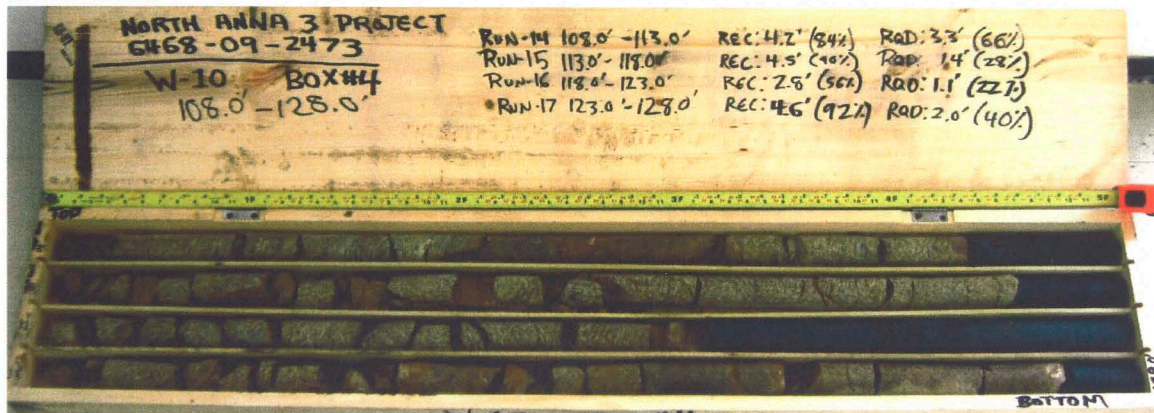 NORTH ANNA 3 PROJECT
6468-09-2473
W-10 BOX#4
108.0'-128.0'
RUN-14 108.0'-113.0' REC: 4.2' (84%) RQD: 3.3' (66%)
RUN-15 113.0'-118.0' REC: 4.5' (90%) RQD: 1.4' (28%)
RUN-16 118.0'-123.0' REC: 2.8' (56%) RQD: 1.1' (22%)
RUN-17 123.0'-128.0' REC: 4.6' (92%) RQD: 2.0' (40%)
1F 2F 3F 4F 5F
TOP
BOTTOM